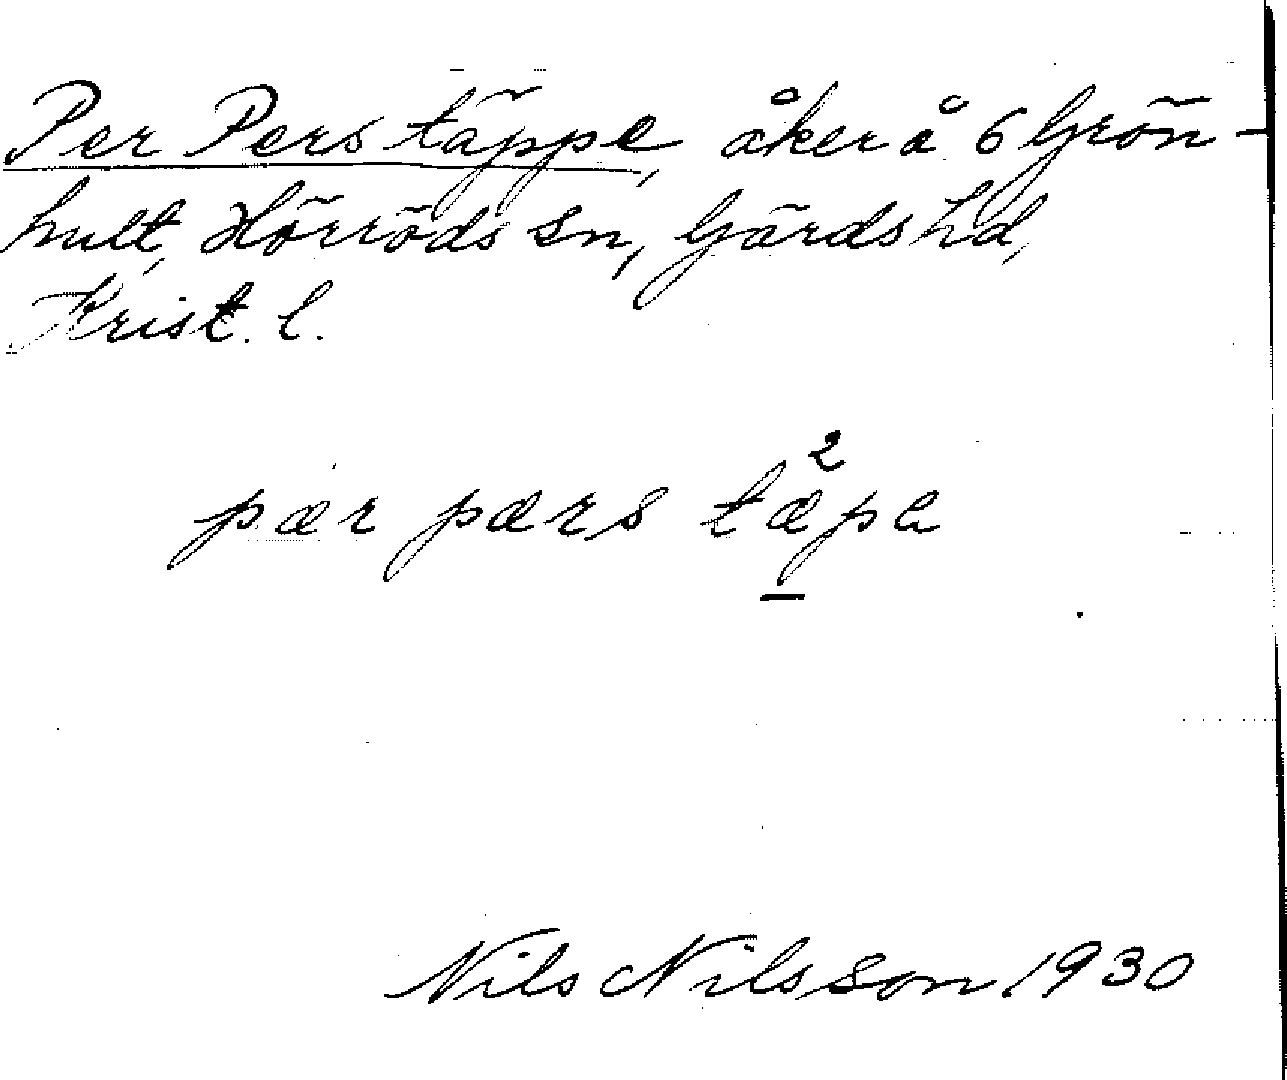 Per Pers täppe, åker å 6 Grön-
hult, Hörröds sn, Gärds hd,
Krist. l.
pær pærs tæ²pa
Nils Nilsson 1930